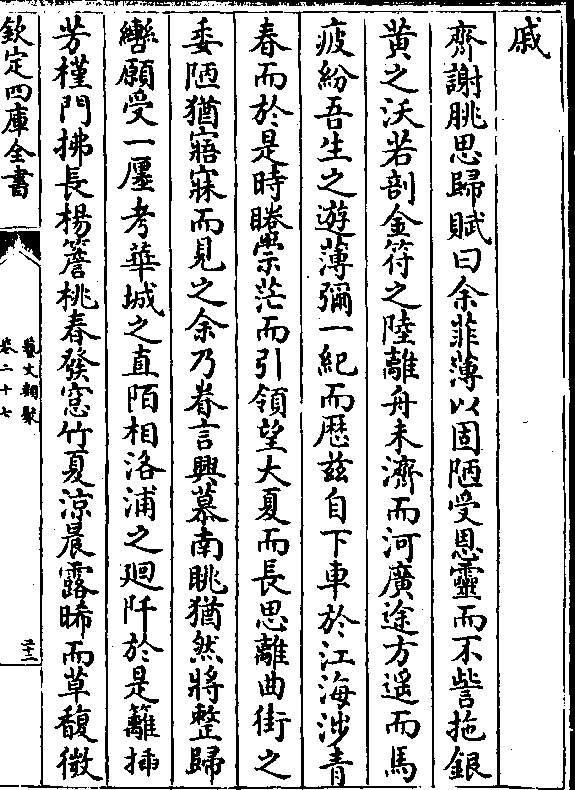 戚
齊謝朓思歸賦曰余菲薄以固陋受恩靈而不訾拖銀
黄之沃若剖金符之陸離舟未濟而河廣途方遥而馬
疲紛吾生之遊薄彌一紀而歴兹自下車於江海涉青
春而於是時睠崇茫而引領望大夏而長思離曲街之
委陋猶寤寐而見之余乃眷言興慕南眺猶然將整歸
轡願受一廛考華城之直陌相洛浦之廻阡於是籬插
芳槿門拂長楊簷桃春發窓竹夏涼晨露晞而草馥微
欽定四庫全書
藝文類聚
卷二十七
三十二